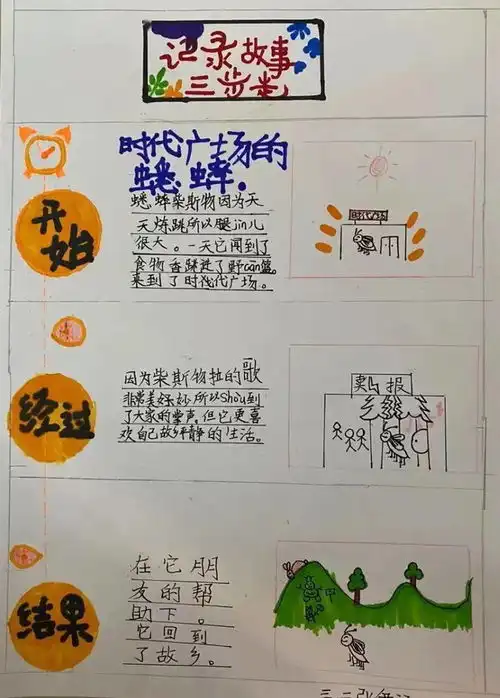 记录故事
三步走
时代广场的
蟋蟀.
开始
蟋蟀柴斯特因为天
天炼跳所以腿jin儿
很大。一天它闻到了
食物香跳进了野can篮。
来到了时代广场。
时代广场
经过
因为柴斯特拉的歌
非常美好妙所以Shou到
了大家的掌声,但它更喜
欢自己故乡平静的生活。
卖报
结果
在它朋
友的帮
助下。
它回到
了故乡。
三、二张